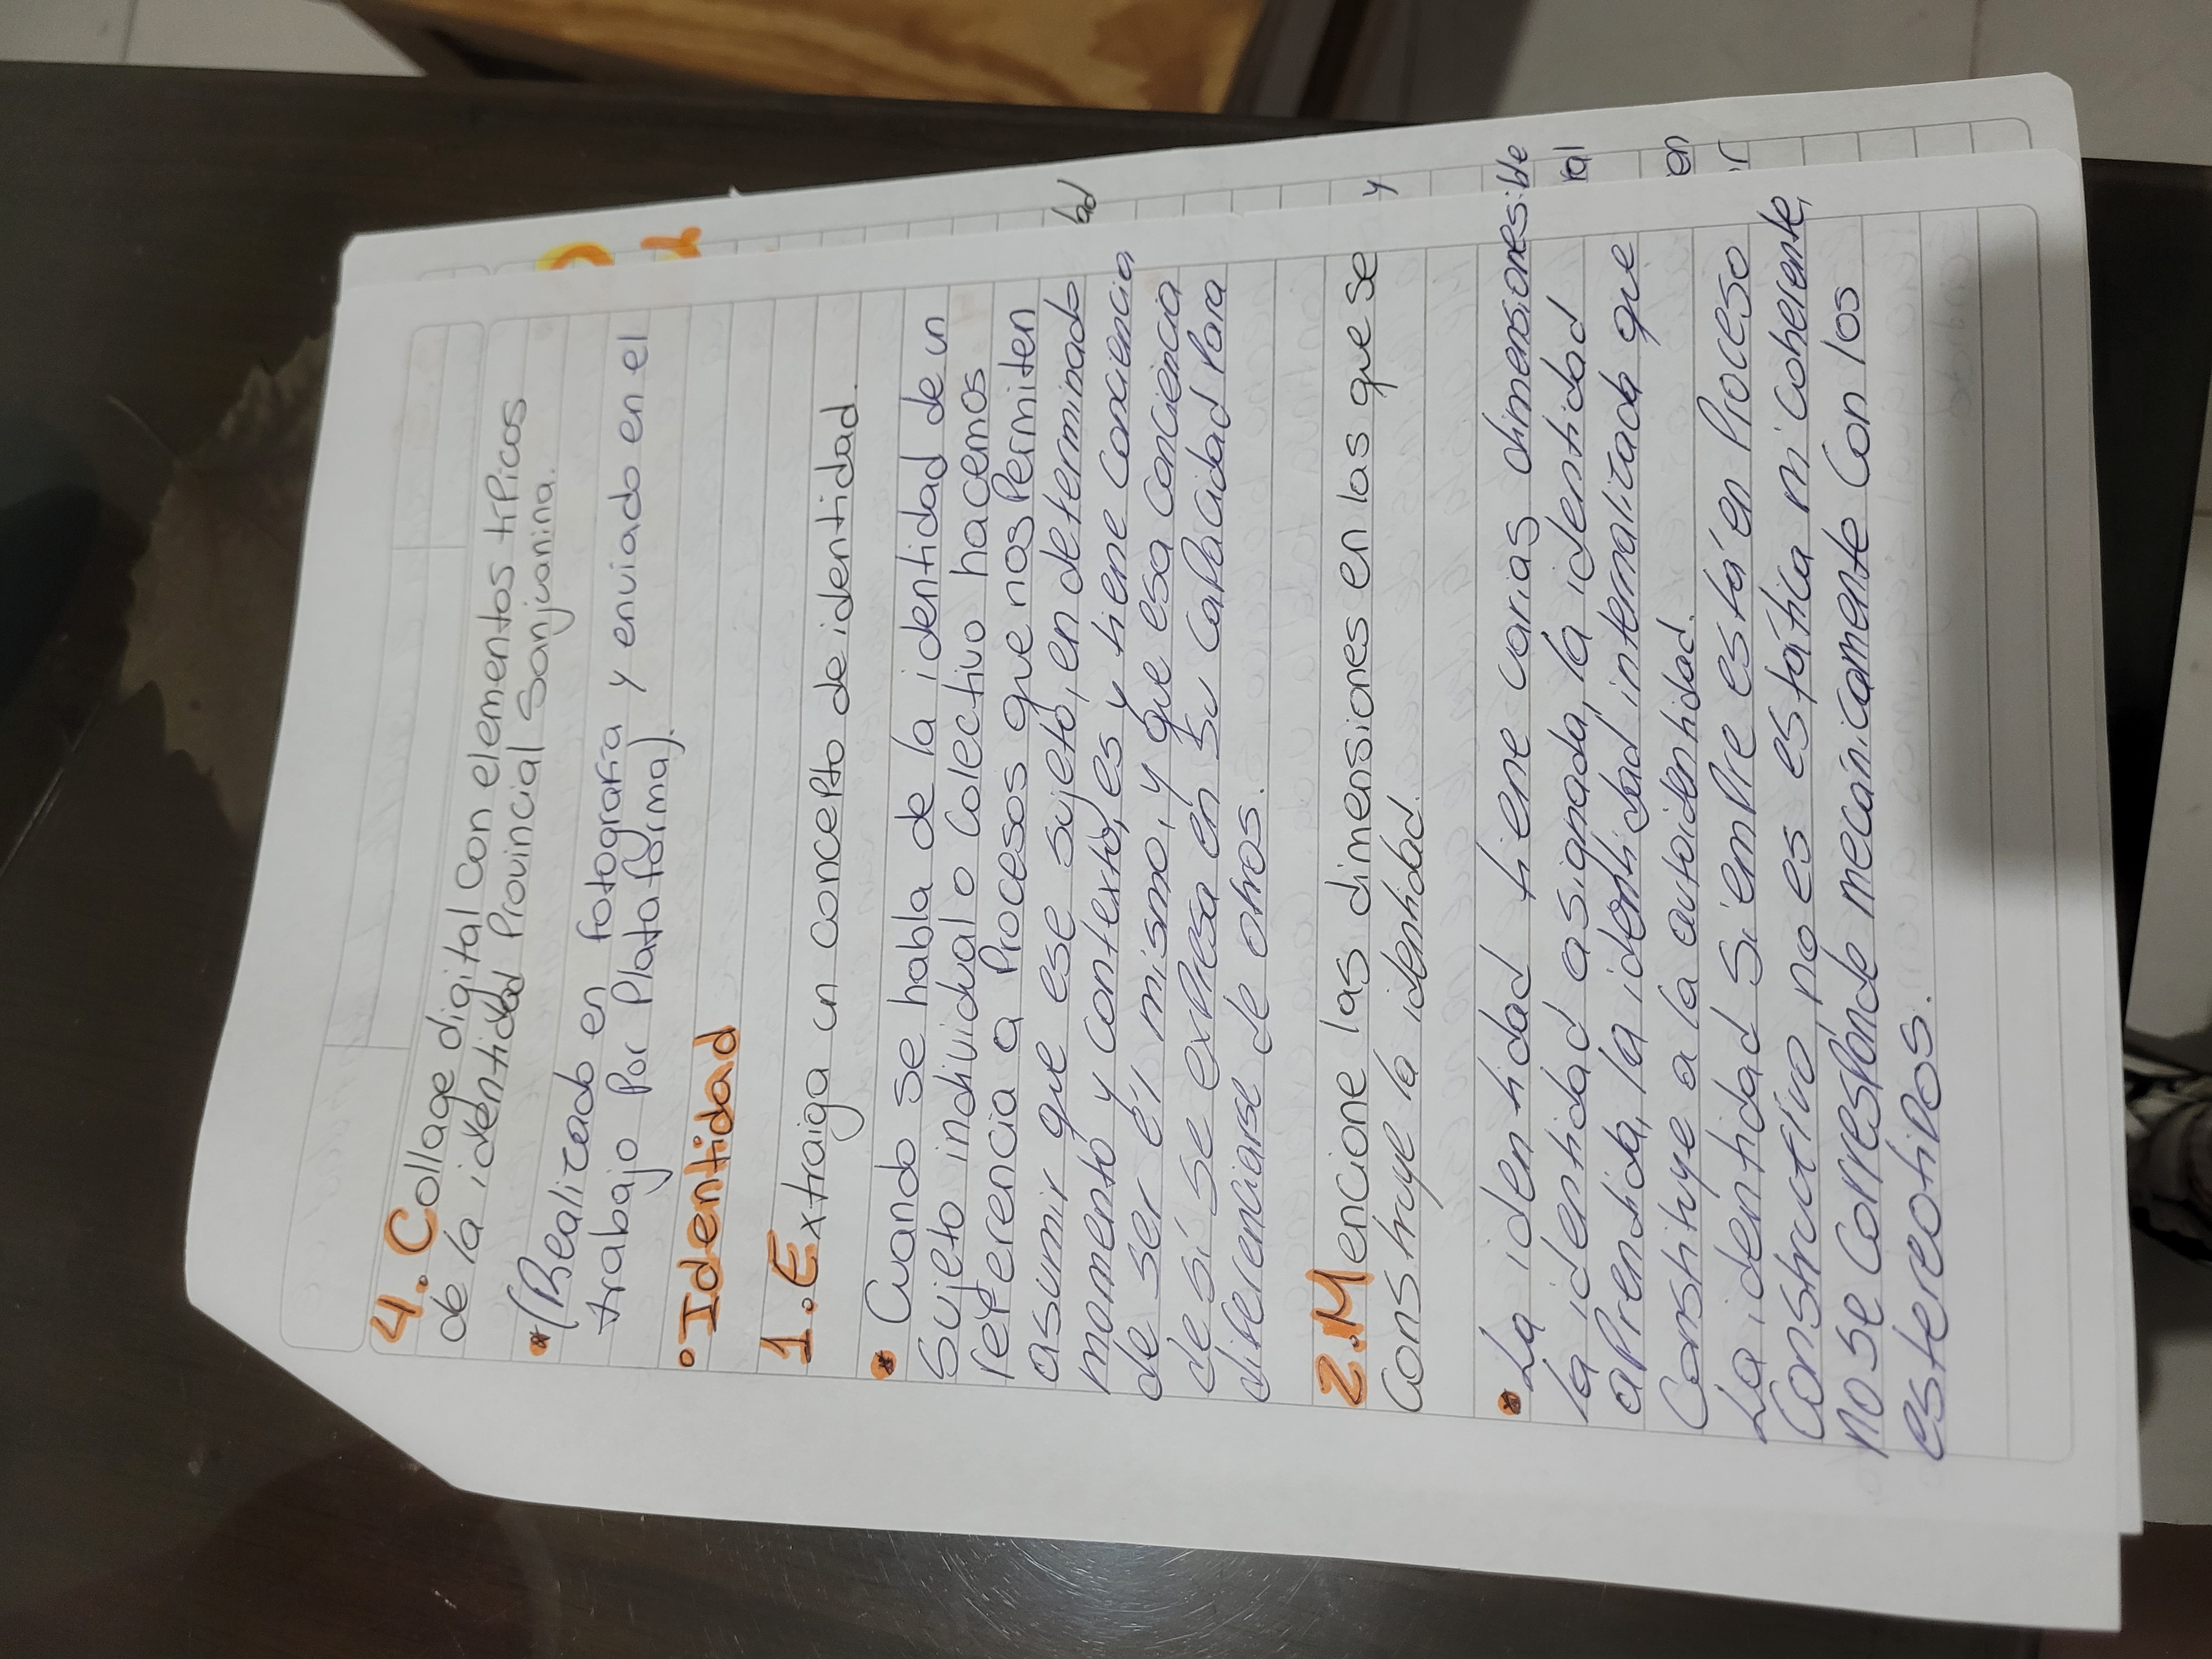 4. Collage digital con elementos típicos
de la identidad Provincial Sanjuanina.
* (Realizado en fotografía y enviado en el
trabajo por Plataforma).
• Identidad
1. Extraiga un concepto de identidad.
* Cuando se habla de la identidad de un
sujeto individual o colectivo hacemos
referencia a Procesos que nos Permiten
asumir que ese sujeto, en determinado
momento y contexto, es y tiene conciencia
de ser él mismo, y que esa conciencia
de sí se expresa en su capacidad para
diferenciarse de otros.
2. Mencione las dimensiones en las que se
construye la identidad.
* La identidad tiene varias dimensiones:
la identidad asignada, la identidad
aprendida, la identidad internalizada que
Constituye a la autoidentidad.
La identidad siempre está en Proceso
constructivo, no es estática ni coherente,
no se corresponde mecánicamente con los
estereotipos.
bd
y
ble
ral
en
r